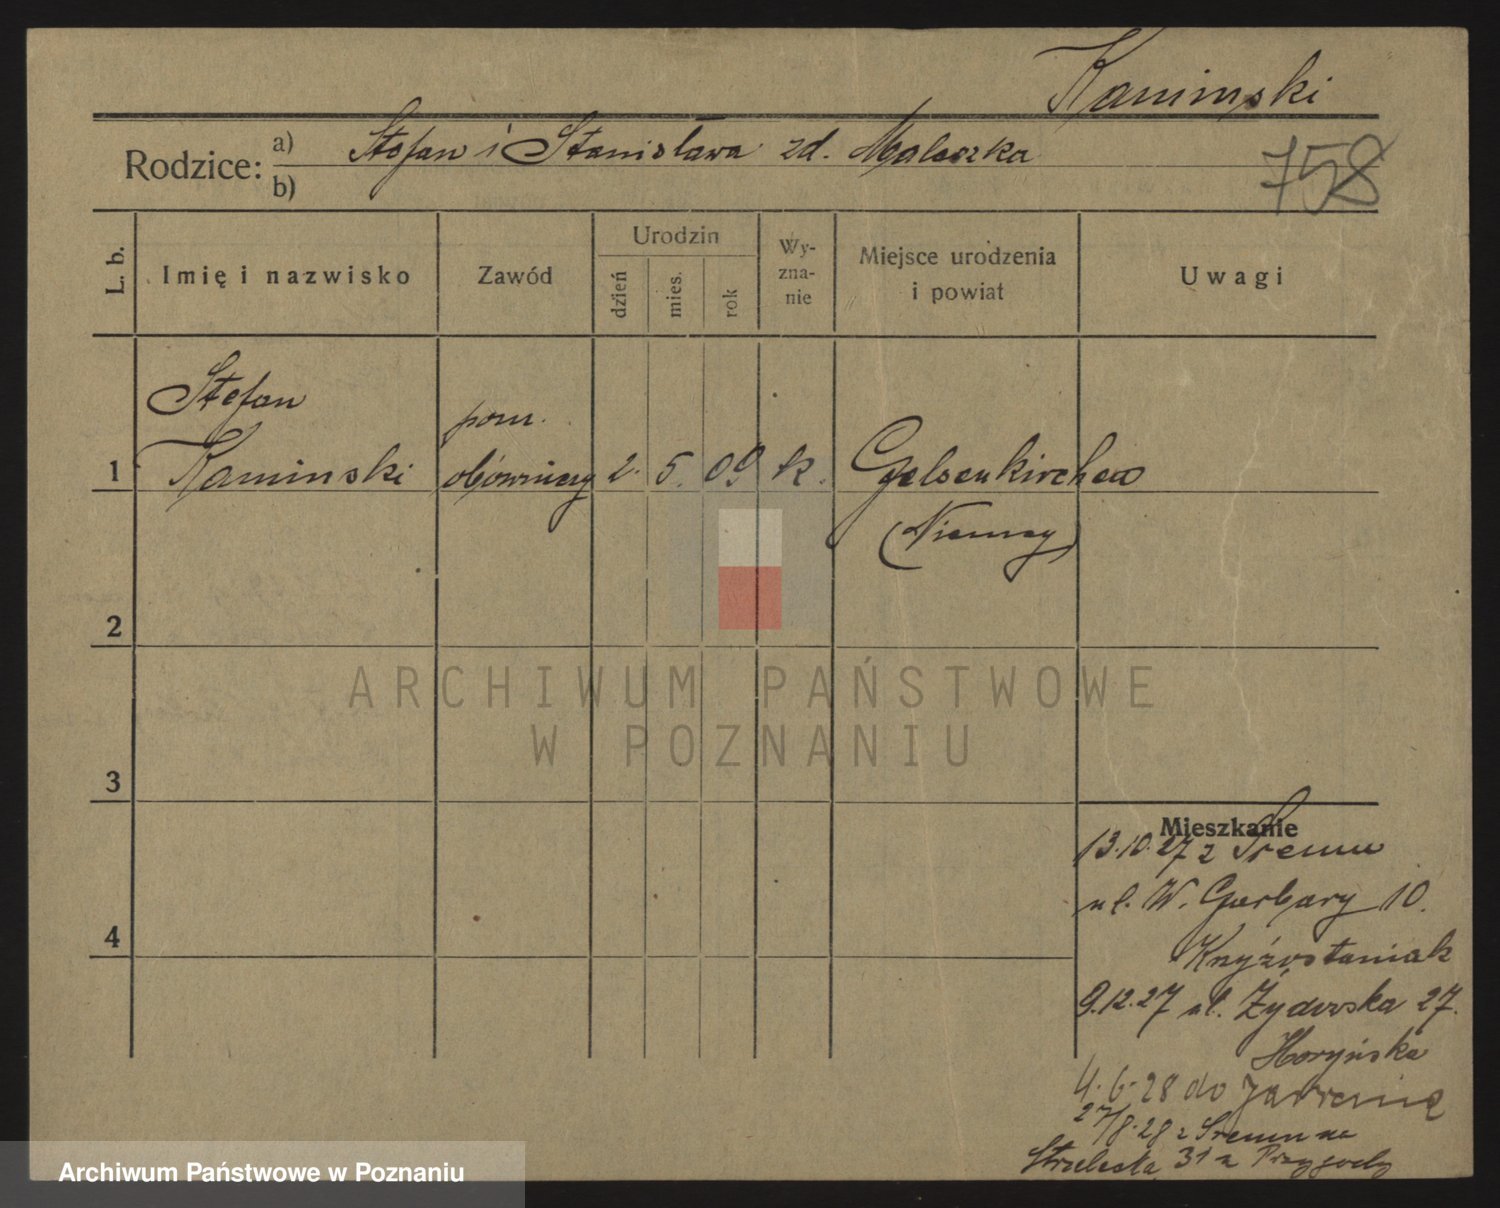 Kaminski
Rodzice:
a) Stefan i Stanisława zd. Maleszka
b)
758
L. b.
Imię i nazwisko
Zawód
Urodzin
dzień
mies.
rok
Wy-
zna-
nie
Miejsce urodzenia
i powiat
Uwagi
Stefan
pom.
1 Kaminski obówniczy 2. 5. 09 k. Gelsenkirchen
(Niemcy)
2
ARCHIWUM PAŃSTWOWE
W POZNANIU
3
Mieszkanie
13.10.27 z Śremu
ul. W. Garbary 10.
4
9.12.27 ul. Żydowska 27.
4.6.28 do
27/8.28 z Śremu na
Strzelecka 31
Archiwum Państwowe w Poznaniu